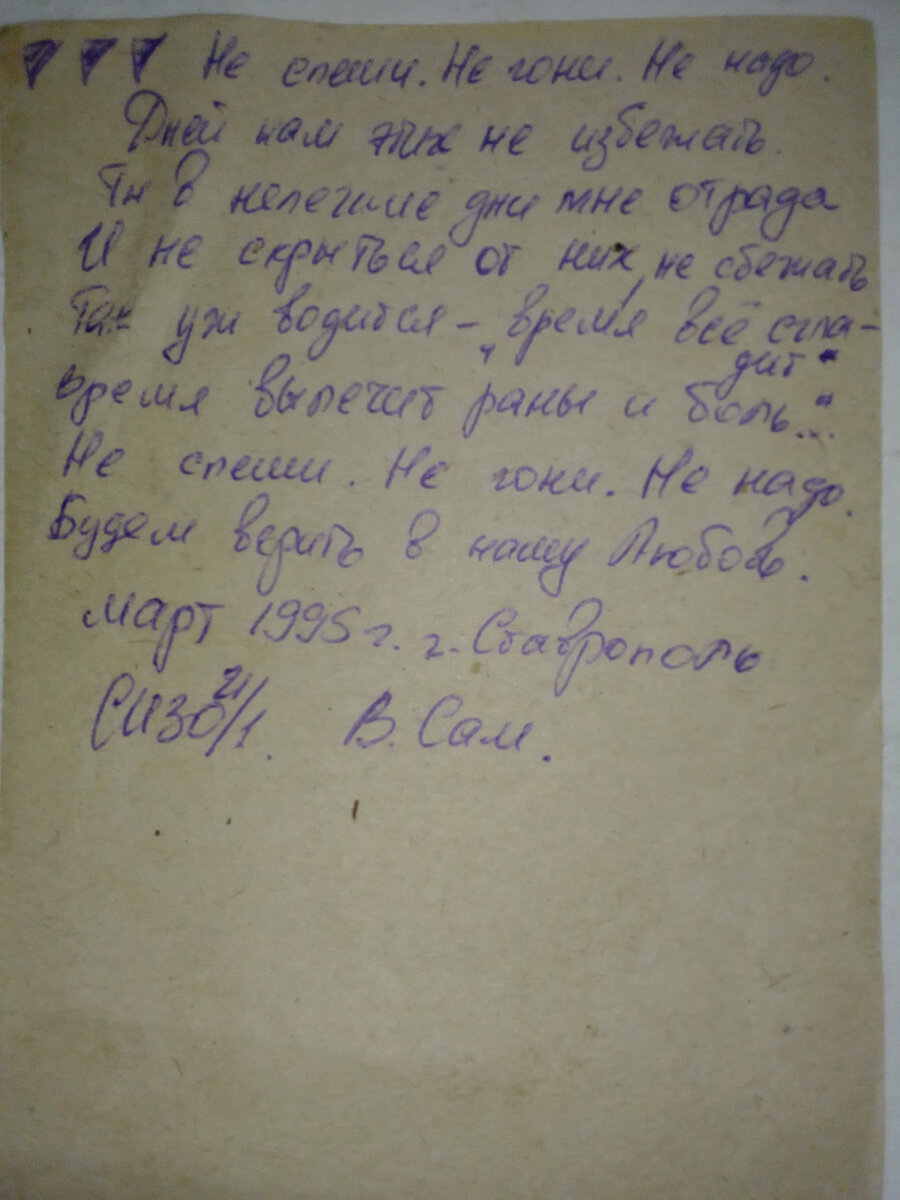 Не спеши. Не гони. Не надо.
Дней нам этих не избежать.
Ты в нелегкие дни мне отрада
И не скрыться от них, не сбежать
Так уж водится – „время всё сгла-
дит"
время вылечит раны и боль..."
Не спеши. Не гони. Не надо.
Будем верить в нашу Любовь.
Март 1995 г. г. Ставрополь
СИЗО 21/1. В. Сам.